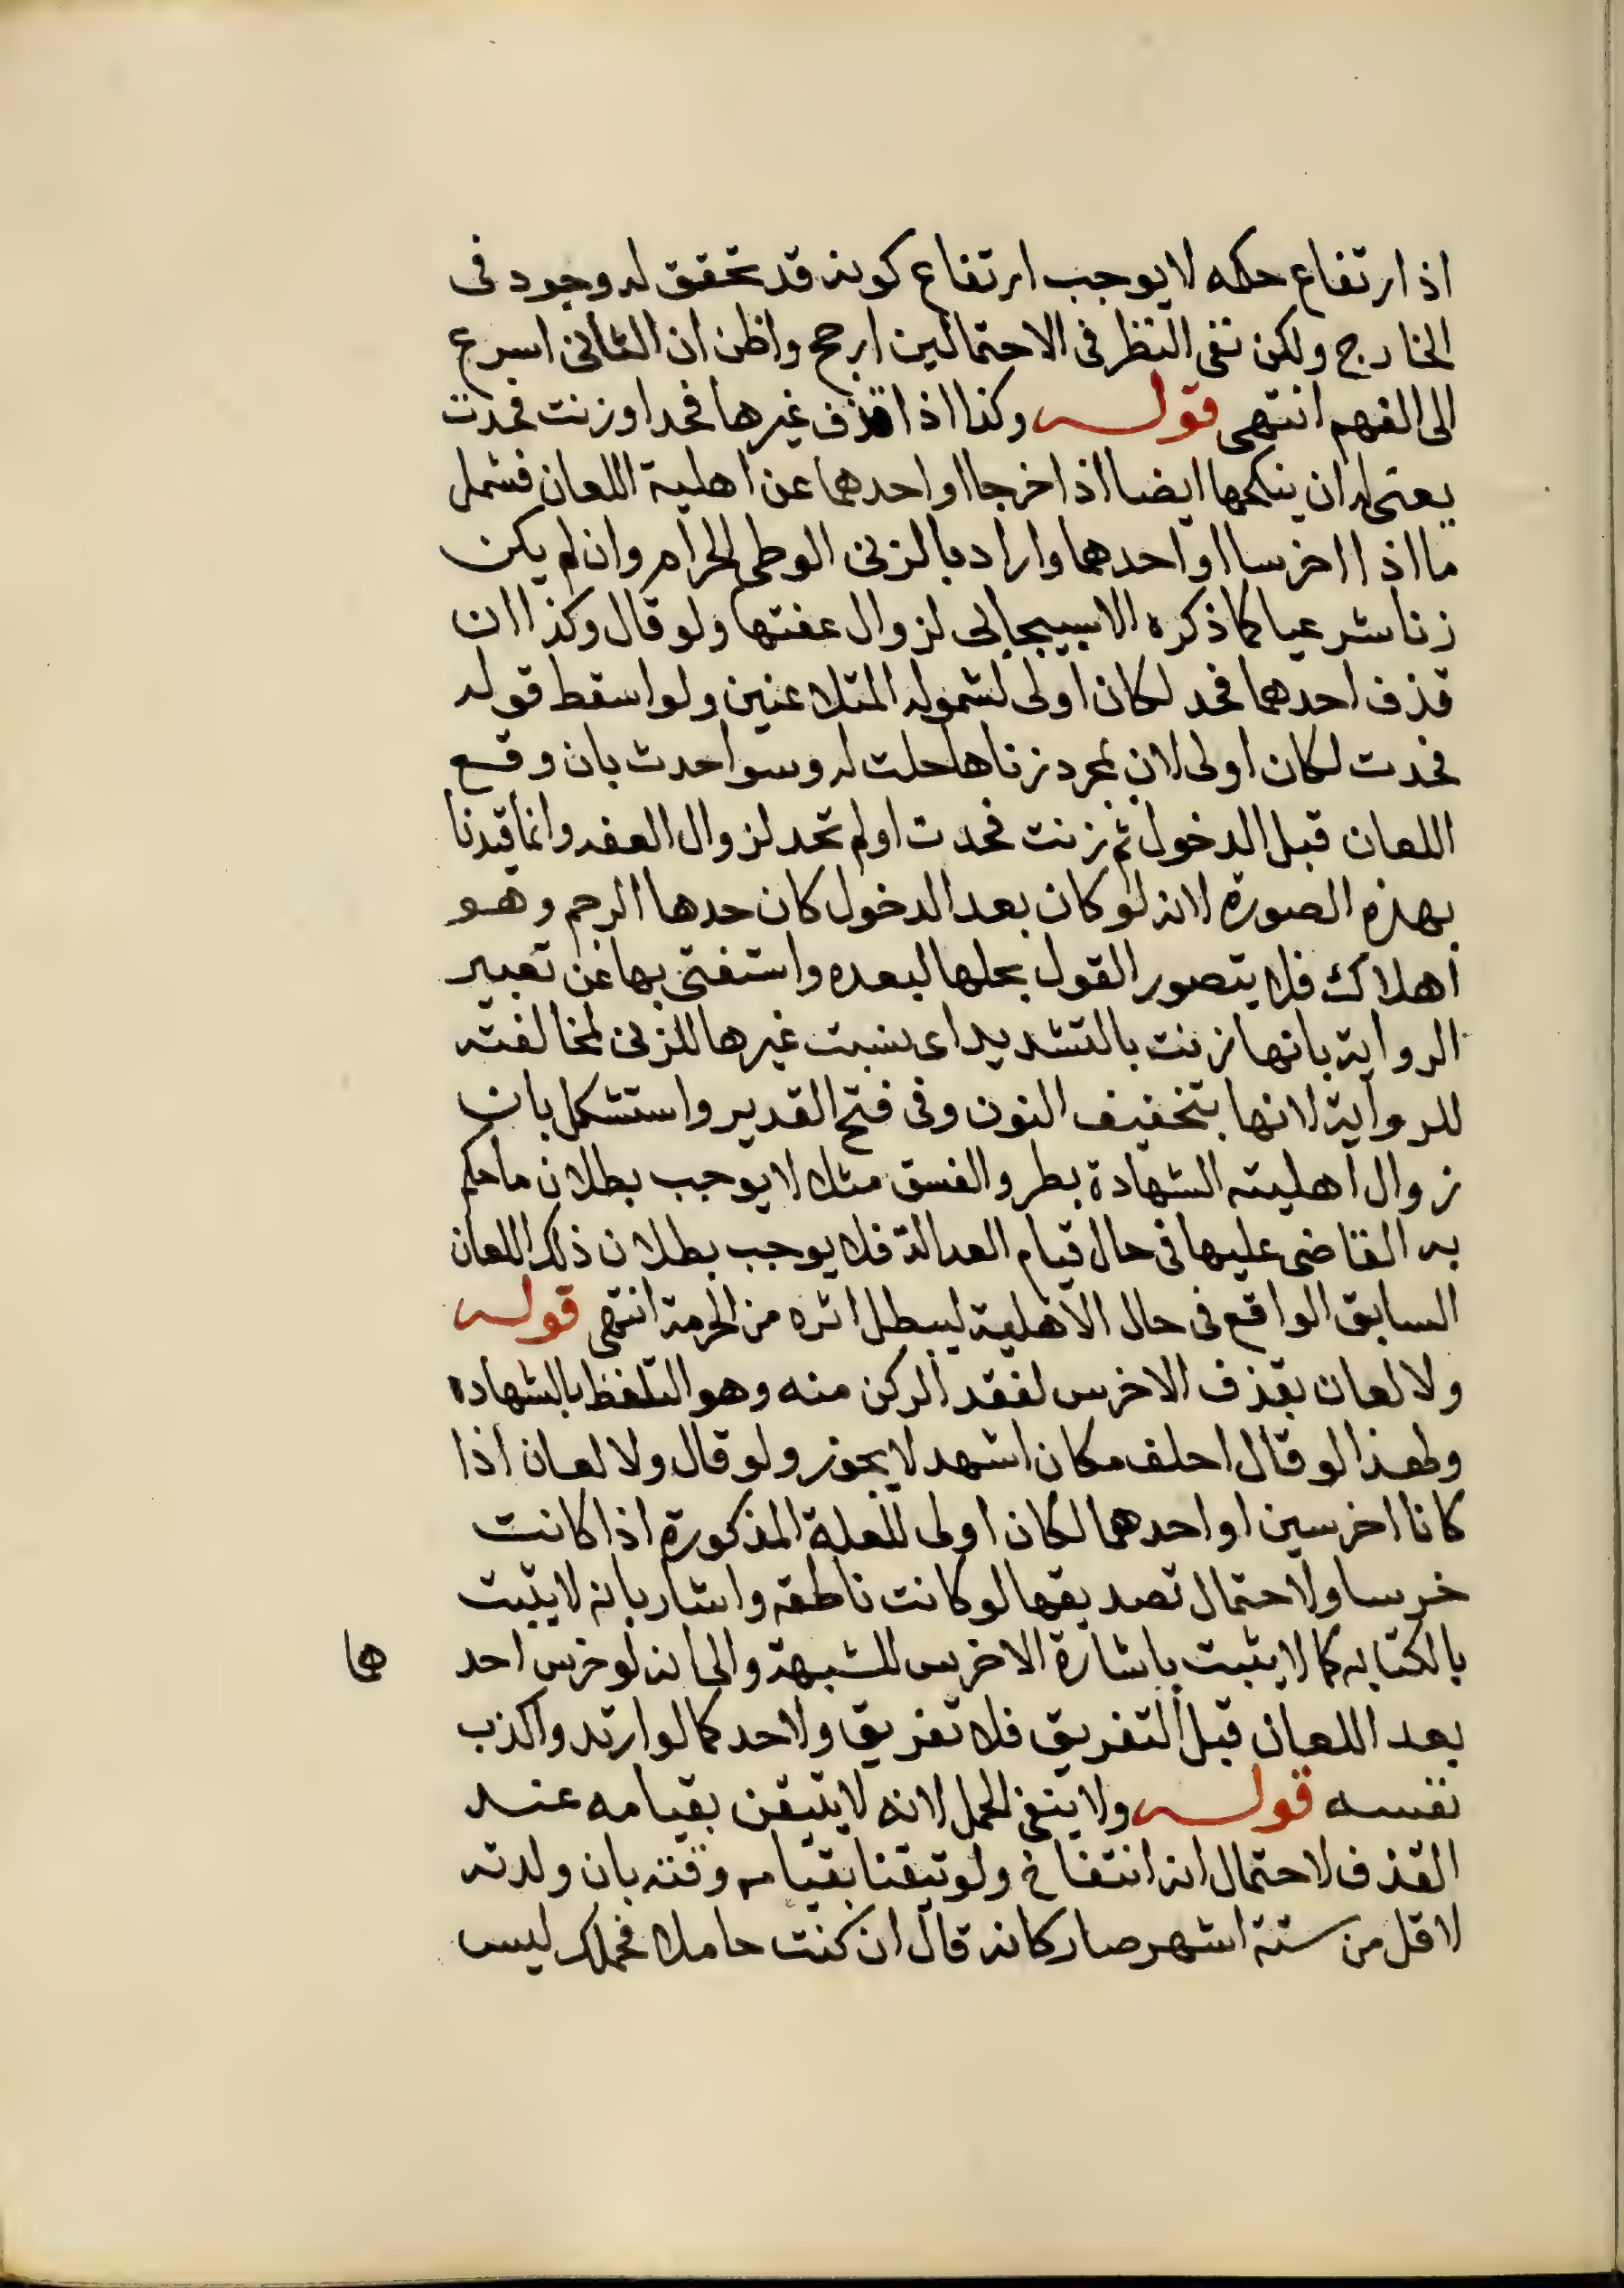 اذ ارتفاع حكمه لا يوجب ارتفاع كونه قد تحقق له وجود فى
الخارج ولكن نفى النظر فى الاحتمالين ارجح واظن ان الثانى اسرع
الى الفهم انتهى قوله وكذا اذا قذف غيرها فحد او زنت فحدت
يعنى له ان ينكحها ايضا اذ اخرجا او احدهما عن اهلية اللعان فشمل
ما اذا اخرسا او احدهما واراد بالزنى الوطى الحرام وان لم يكن
زنا شرعيا كما ذكره الاسبيجابى لزوال عفتها ولو قال وكذا ان
قذف احدهما فحد لكان اولى لشموله المتلاعنين ولو اسقط قوله
فحدت لكان اولى لان بمجرد زناها حلت له وسوا حدت بان وقع
اللعان قبل الدخول ثم زنت فحدت او لم تحد لزوال العفه وانما قيدنا
بهذه الصورة لانه لو كان بعد الدخول كان حدها الرجم وهو
اهلاك فلا يتصور القول بحلها لبعده واستغنى بها عن تعبير
الرواية بانها زنت بالتشديد اى نسبت غيرها للزنى لمخالفته
للرواية لانها بتخفيف النون وفى فتح القدير واستشكل بان
زوال اهليته الشهادة بطرو الفسق مثلا لا يوجب بطلان ما حكم
به القاضى عليها فى حال قيام العدالة فلا يوجب بطلان ذلك اللعان
السابق الواقع فى حال الاهلية ليبطل اثره من الحرمة انتهى قوله
ولا لعان بقذف الاخرس لفقد الركن منه وهو التلفظ بالشهاده
ولهذا لو قال احلف مكان اشهد لا يجوز ولو قال ولا لعان اذا
كانا اخرسين او احدهما لكان اولى للعلة المذكورة اذا كانت
خرسا ولاحتمال تصديقها لو كانت ناطقه واشار بانه لا يثبت
بالكتابه كما لا يثبت باشارة الاخرس للشبهة والى انه لو خرس احد هما
بعد اللعان قبل التفريق فلا تفريق ولا حد كما لو ارتد واكذب
نفسه قوله ولا ينفى الحمل لانه لا يتيقن بقيامه عند
القذف لاحتمال انه انتفاخ ولو تيقنا بقيامه وقته بان ولدته
لاقل من ستة اشهر صار كانه قال ان كنت حاملا فحملك ليس